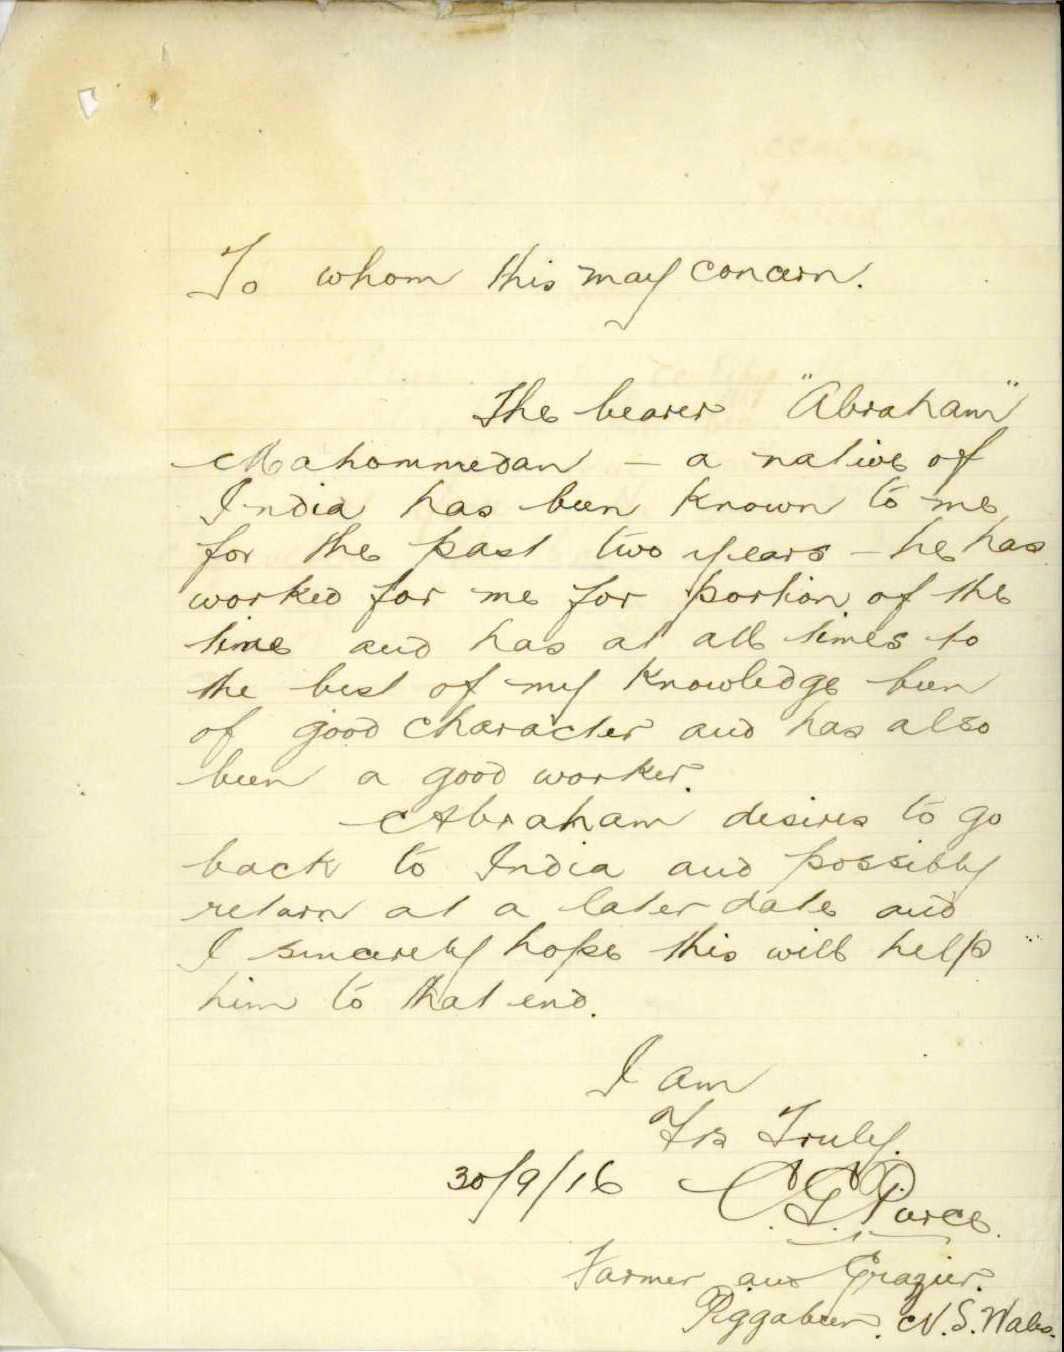 To whom this may concern.
The bearer "Abraham"
Mahommedan — a native of
India has been known to me
for the past two years — he has
worked for me for portion of the
time and has at all times to
the best of my knowledge been
of good character and has also
been a good worker.
Abraham desires to go
back to India and possibly
return at a later date and
I sincerely hope this will help
him to that end.
I am
Yrs Truly.
30/9/16 C. G.
Farmer and Grazier.
Piggabeen. N. S. Wales.